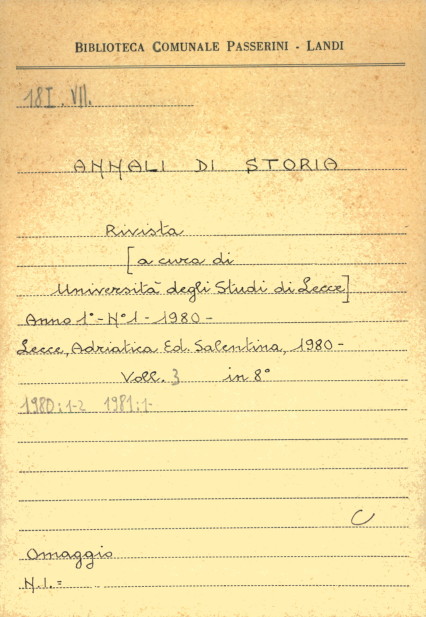 BIBLIOTECA COMUNALE PASSERINI - LANDI
18I. VII.
ANNALI DI STORIA
Rivista
[a cura di
Università degli Studi di Lecce]
Anno 1°-N°1-1980-
Lecce, Adriatica Ed. Salentina, 1980-
Voll. 3 in 8°
1980:1-2 1981:1-
C
Omaggio
N.I.=